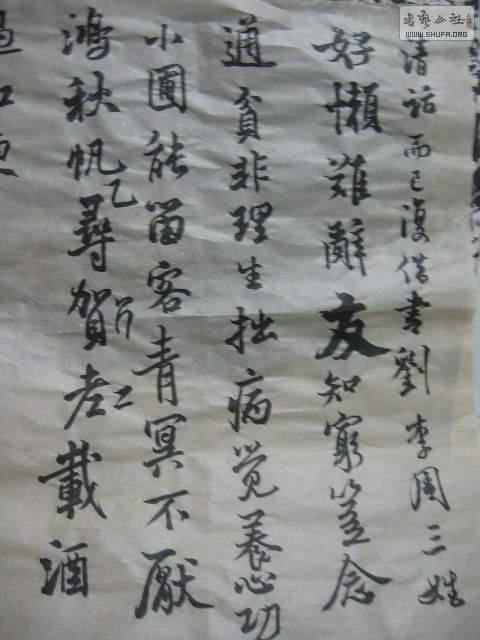 書藝公社
WWW.SHUFA.ORG
清話而已復借書劉李周三姓
好懶難辭友知窮豈念
通貧非理生拙病觉養心功
小圃能留客青冥不厭
鴻秋帆乙尋賀老載酒
過江